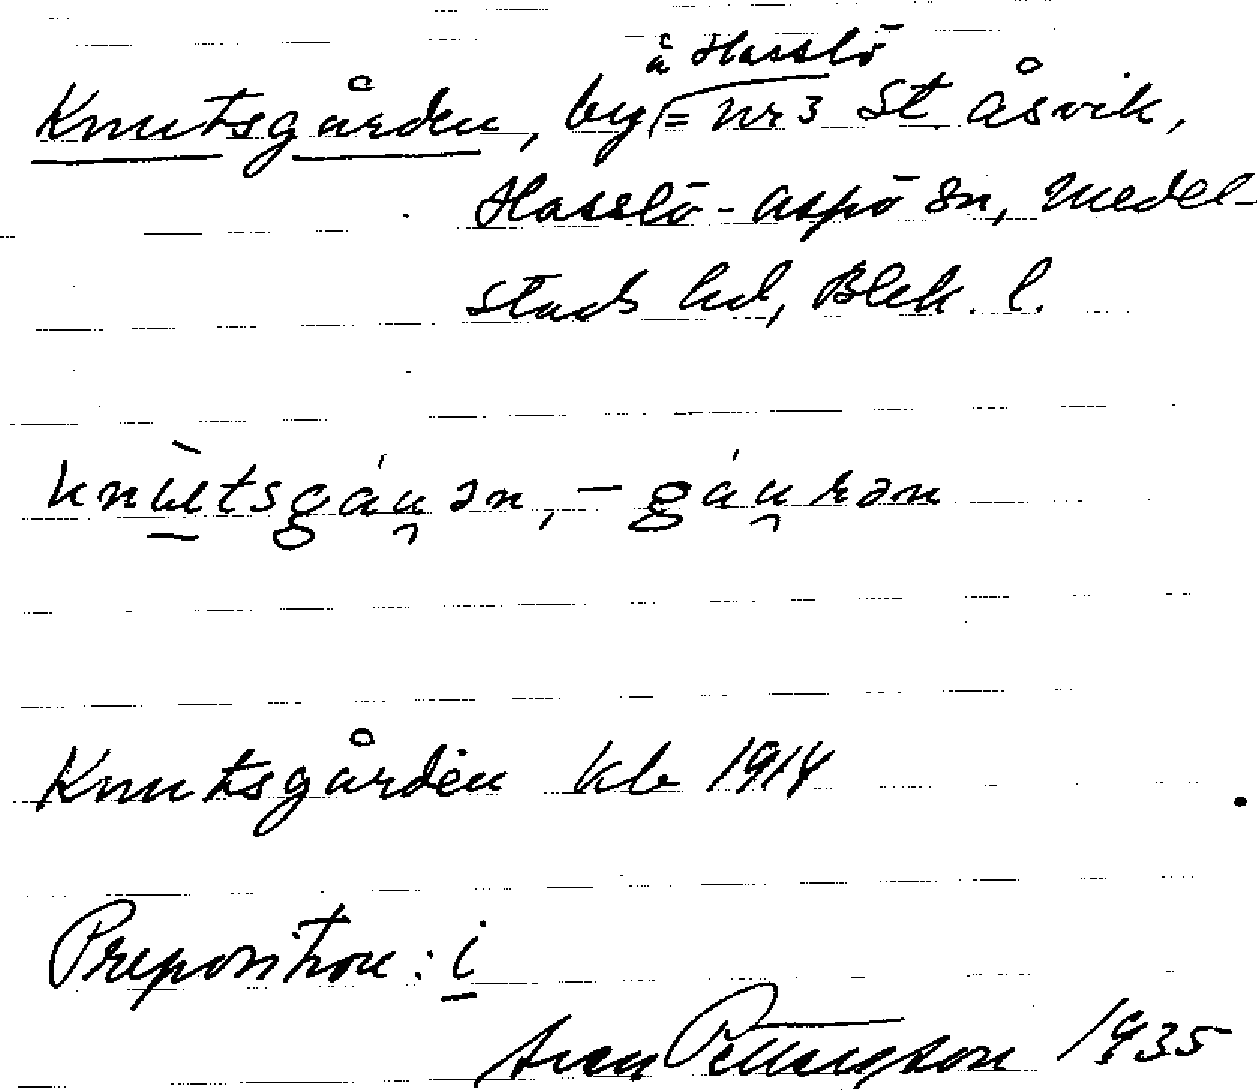 å Hasslö
Knutsgården, by (= nr 3 St. Åsvik,
Hasslö-Aspö sn, Medel-
stads hd, Blek. l.
knùtsgáu̯ən, -gáu̯rən
Knutsgården kb 1914
Preposition: i
Pettersson 1935